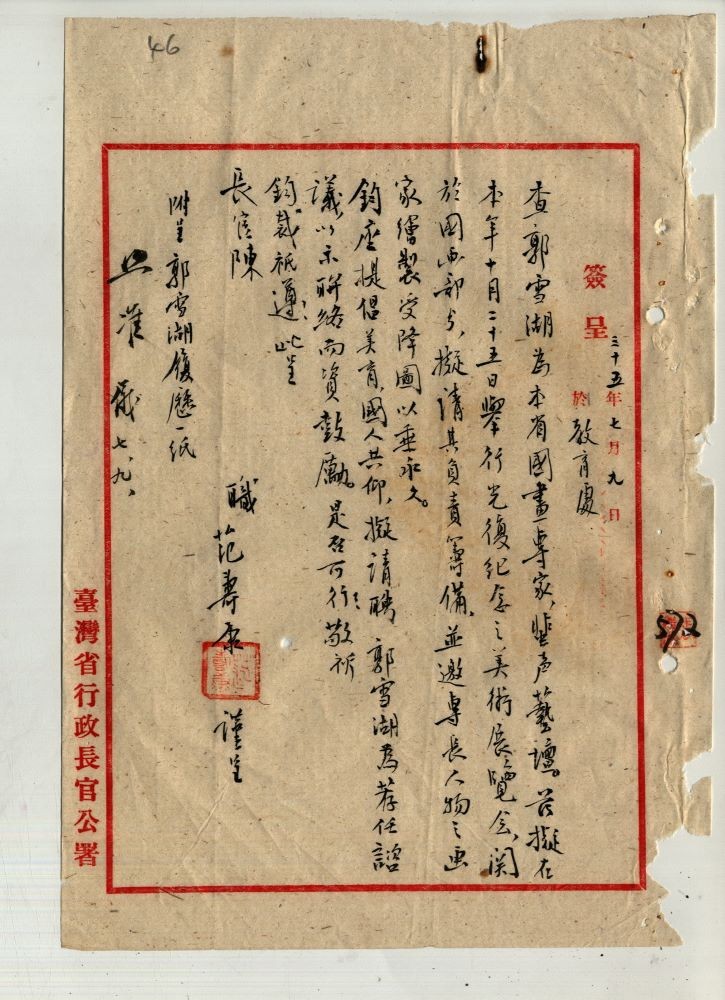 46
簽呈 三十五年七月九日
於教育處
查郭雪湖為本省國畫專家,蜚声藝壇。茲擬在
本年十月二十五日舉行光復紀念之美術展覽会,関
於國画部分,擬請其負責籌備,並邀專長人物之画
家繪製受降圖以垂永久。
鈞座提倡美育,國人共仰,擬請聘郭雪湖為荐任諮
議,以示聯絡而資鼓勵。是否可行,敬祈
鈞裁祇遵。此呈
長官陳
職范壽康 謹呈
附呈郭雪湖履歷一紙
照准 儀 七、九、
臺灣省行政長官公署
572